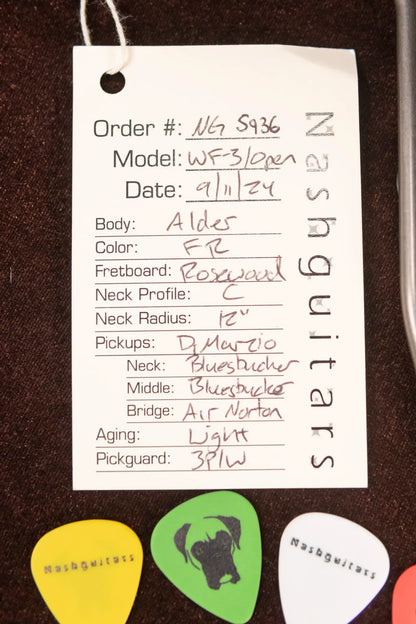 Order #: NG 5936
Model: WF-3/Open
Date: 9/11/24
Body: Alder
Color: FR
Fretboard: Rosewood
Neck Profile: C
Neck Radius: 12"
Pickups: DiMarzio
Neck: Bluesbucker
Middle: Bluesbucker
Bridge: Air Norton
Aging: Light
Pickguard: 3P/W
Nashguitars
NashGuitars
NashGuitars